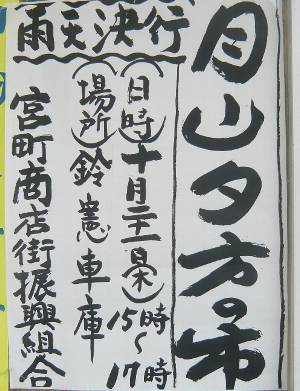 月山夕方の市
雨天決行
(日時)十月二十一日(木)15時〜17時
(場所)鈴憲車庫
宮町商店街振興組合